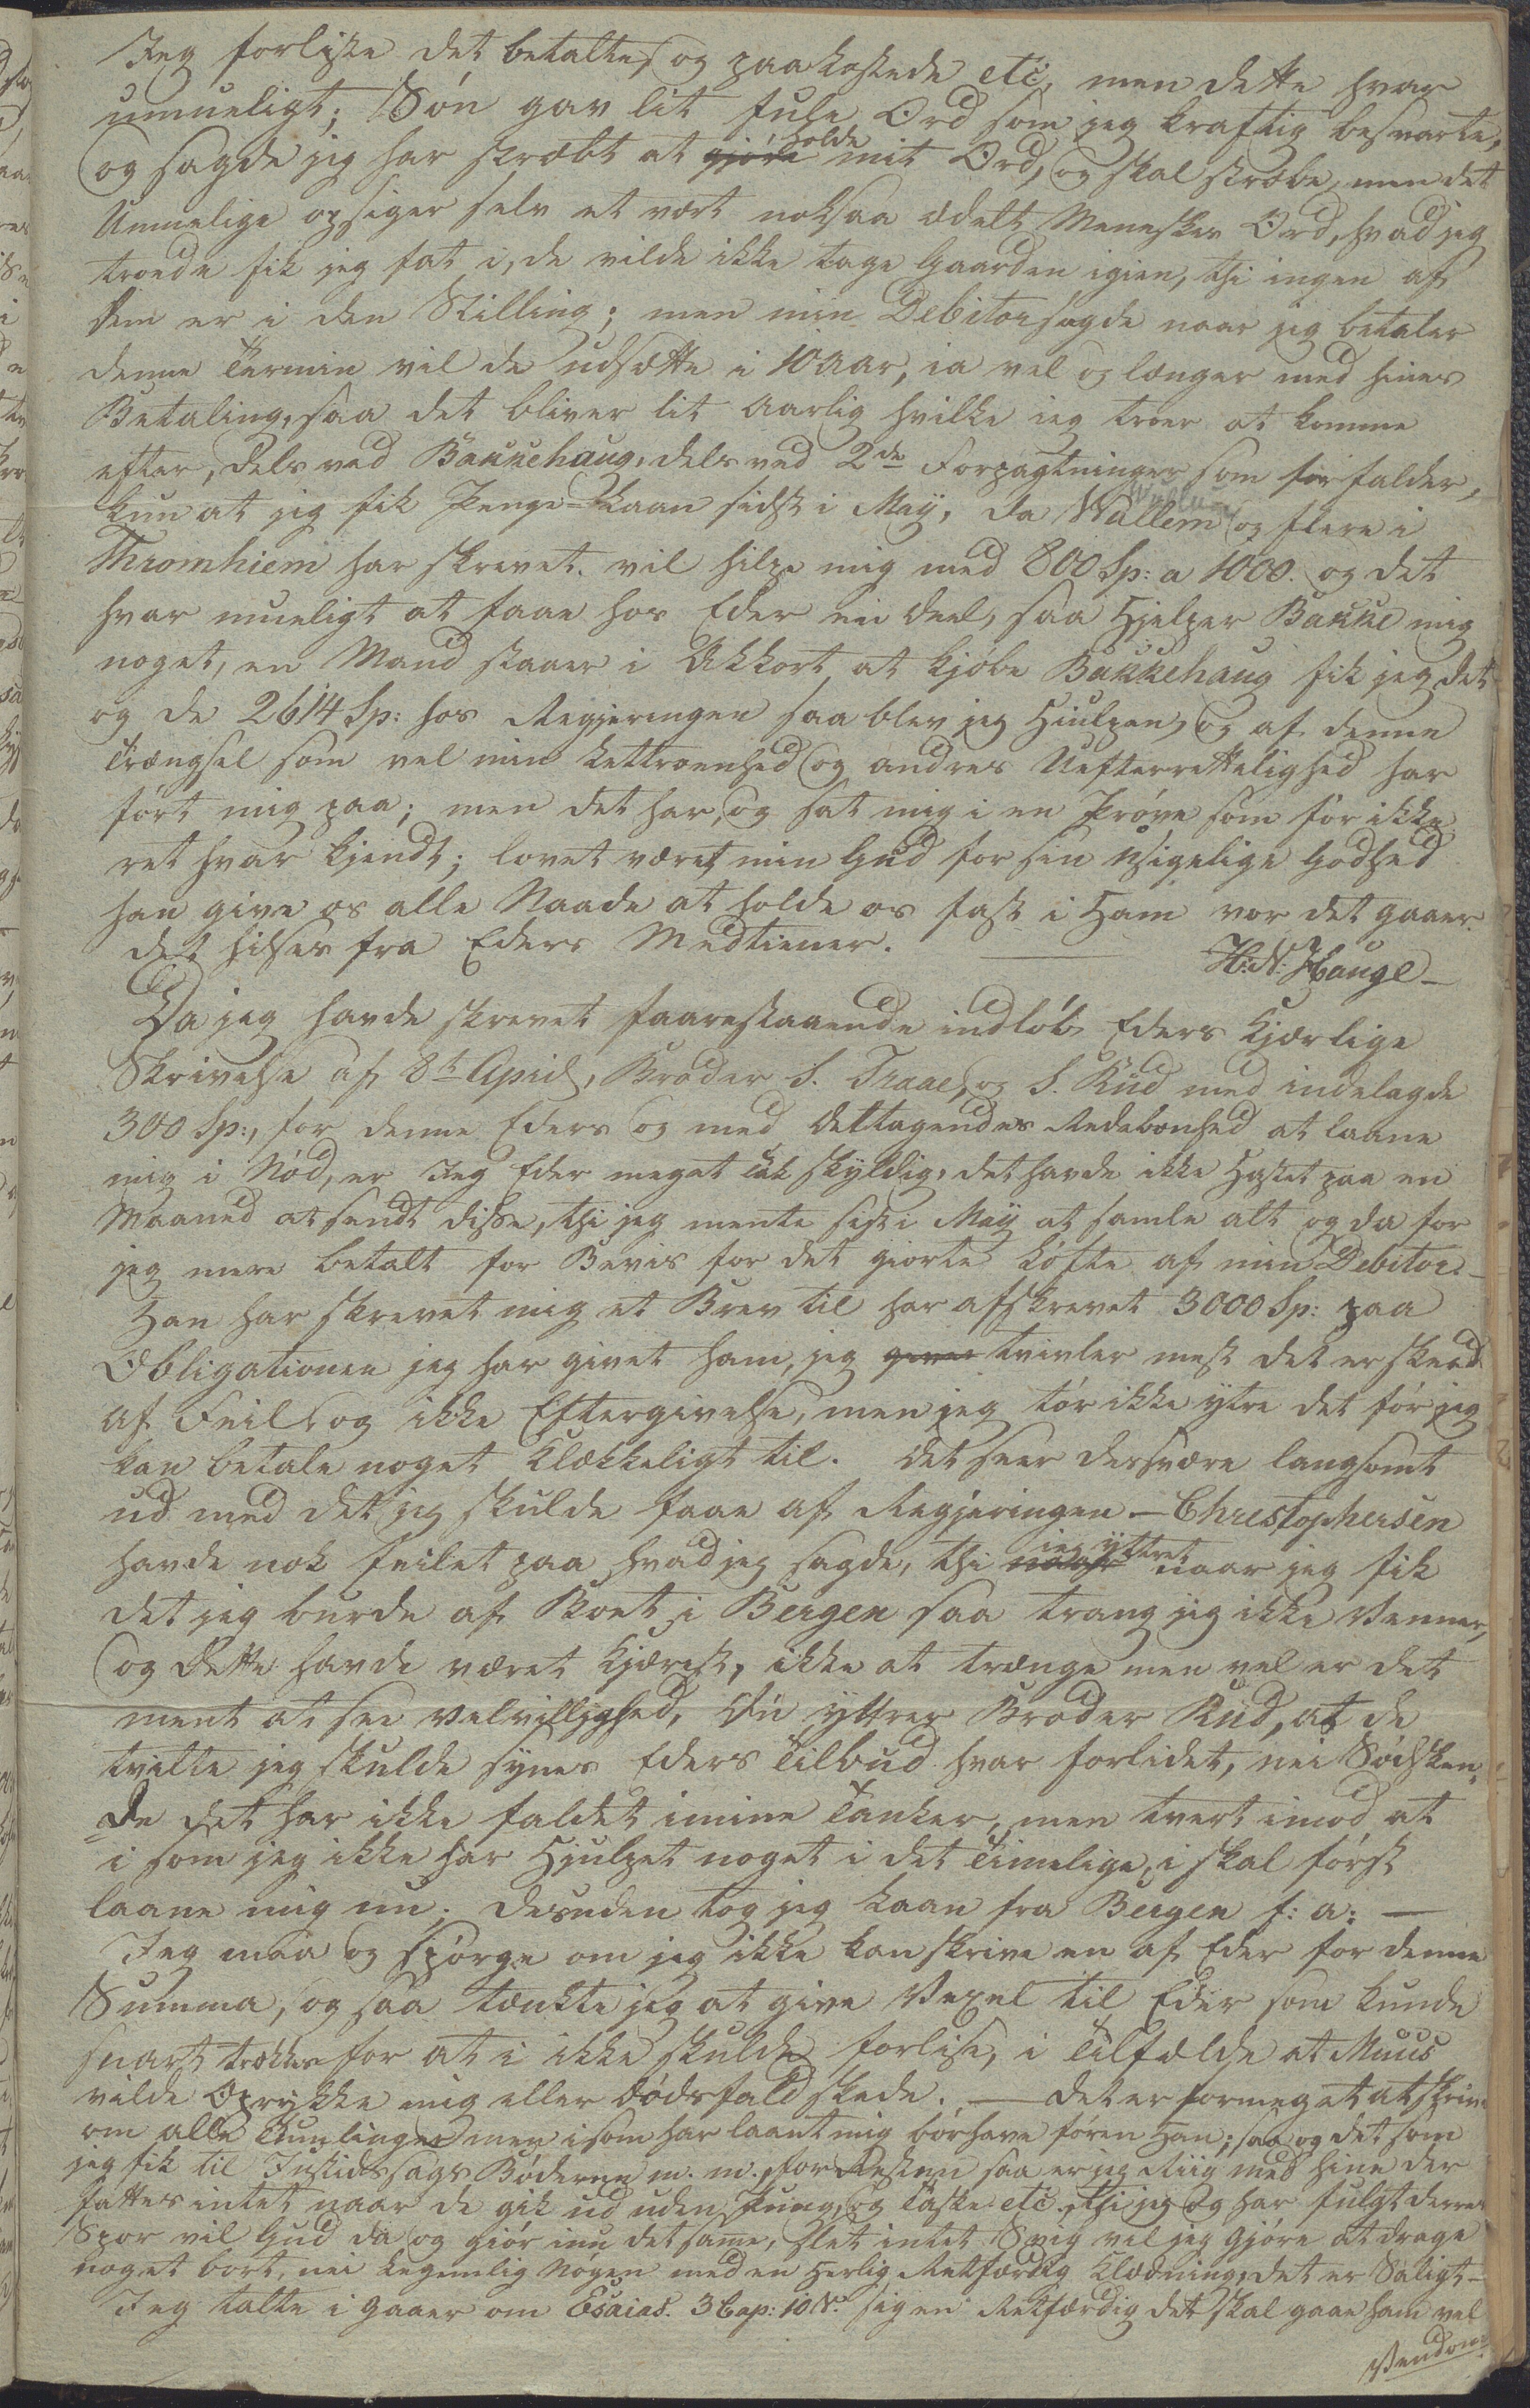 Jeg forliste det betalte og paakostede etc, men dette hvar
umueligt; Søn gav lit fule Ord som jeg kraftig besvarte,
og sagde jeg har stræbt at gjöre holde mit Ord, og skal stræbe, men det
Umuelige opsiger selv et vort noksaa ædelt Meneskes Ord, hvad jeg
troede fik jeg fat i, de vilde ikke tage Gaarden igien, thi ingen af
dem er i den Stilling; men min Debitor sagde naar jeg betaler
denne Termin vil de udsætte i 10 aar, ia vel og længer med hines
Betaling, saa det bliver lit Aarlig hvilke ieg troer at komme
efter, dels ved Bakkehaug, dels ved 2de Forpagtninger som forfalder,
kun at jeg fik Penge-Laan sidst i Maÿ, da Wallem og flere i
Thromhiem har skrevet vil hilpe mig med 800 Sp: a 1000. og det
hvar mueligt at faae hos Eder en deel, saa Hjelper Bakke mig
noget, en Mand staaer i Akkort at kjøbe Bakkehaug fik jeg det
og de 2614 Sp: hos Regjeringen saa blev jeg Hiulpen, og af denne
Trængsel som vel min Lettroenhed og andres Uefterrettelighed har
ført mig paa; men det har og sat mig i en Prøve som før ikke
ret hvar kjendt; lovet været min Gud for sin Usigelige Godhed
han give os alle Naade at holde os fast i Ham vor det gaaer.
det hilses fra Eders Medtiener.
H: N: Hauge
Da jeg havde skrevet faarestaaende indløb Eders Kjærlige
Skrivelse af 8t April, Broder S. Traae, og S. Rud med indelagde
300 Sp:, for denne Eders og med Deltagendes Redebonhed at laane
mig i Nød, er Jeg Eder meget Tak skyldig, det havde ikke Hastet paa en
Maaned at sendt disse, thi jeg mente sist i Maÿ at samle alt og da for
jeg mere betalt for Bevis for det giorte Løfte af min Debitor.
Han har skrevet mig et Brev til har afskrevet 3000 Sp: paa
Obligationen jeg har givet ham, jeg tvivler mest det er skeed
af Feil, og ikke Eftergivelse, men jeg tør ikke ytre det før jeg
kan betale noget Klækkeligt til. Det seer desvære langsomt
ud med det jeg skulde faae af Regjeringen – Chrestophersen
havde nok feilet paa hvad jeg sagde, thi ieg ÿttret naar jeg fik
det jeg burde af Boet i Bergen saa trang jeg ikke Venner,
og dette havde været Kjærest, ikke at trænge men vel er det
ment at see Velvilligghed, Du ÿttrer Broder Rud, at de
tvilte jeg skulde synes Eders Tilbud hvar forlidet, nei Sødsken-
de det har ikke faldet i mine Tanker, men tvert imod at
i som jeg ikke har Hjulpet noget i det Timelige, i skal først
laane mig nu; desuden tog jeg Laan fra Bergen f: a: —
Jeg maa og spørge om jeg ikke kan skrive en af Eder for denne
Summa, og saa tænkte jeg at give Vexel til Eder som kunde
snart trækkes for at i ikke skulde forlise, i Tilfælde at Muus
vilde Oprykke mig eller Dødsfald skede. — det er formeget at skrive
om alle men i som har laant mig bør have føren Han; saa og det som
jeg fik til Justidssags Bøderne m. m., for Resten saa er jeg Riig med hine der
fattes intet naar de gik ud uden Pung, og Taske etc. thi jeg og har fulgt derres
Spor vil Gud da og giør inu det same, slet intet Svig vil jeg gjøre at drage
noget bort, nei Legemlig Nøgen med en Herlig Retfærdig Klædning, det er Saligt –
Jeg talte i Gaaer om Esaias. 3 Cap: 10 V. sig en Retfærdig det skal gaae ham vel
Vend om